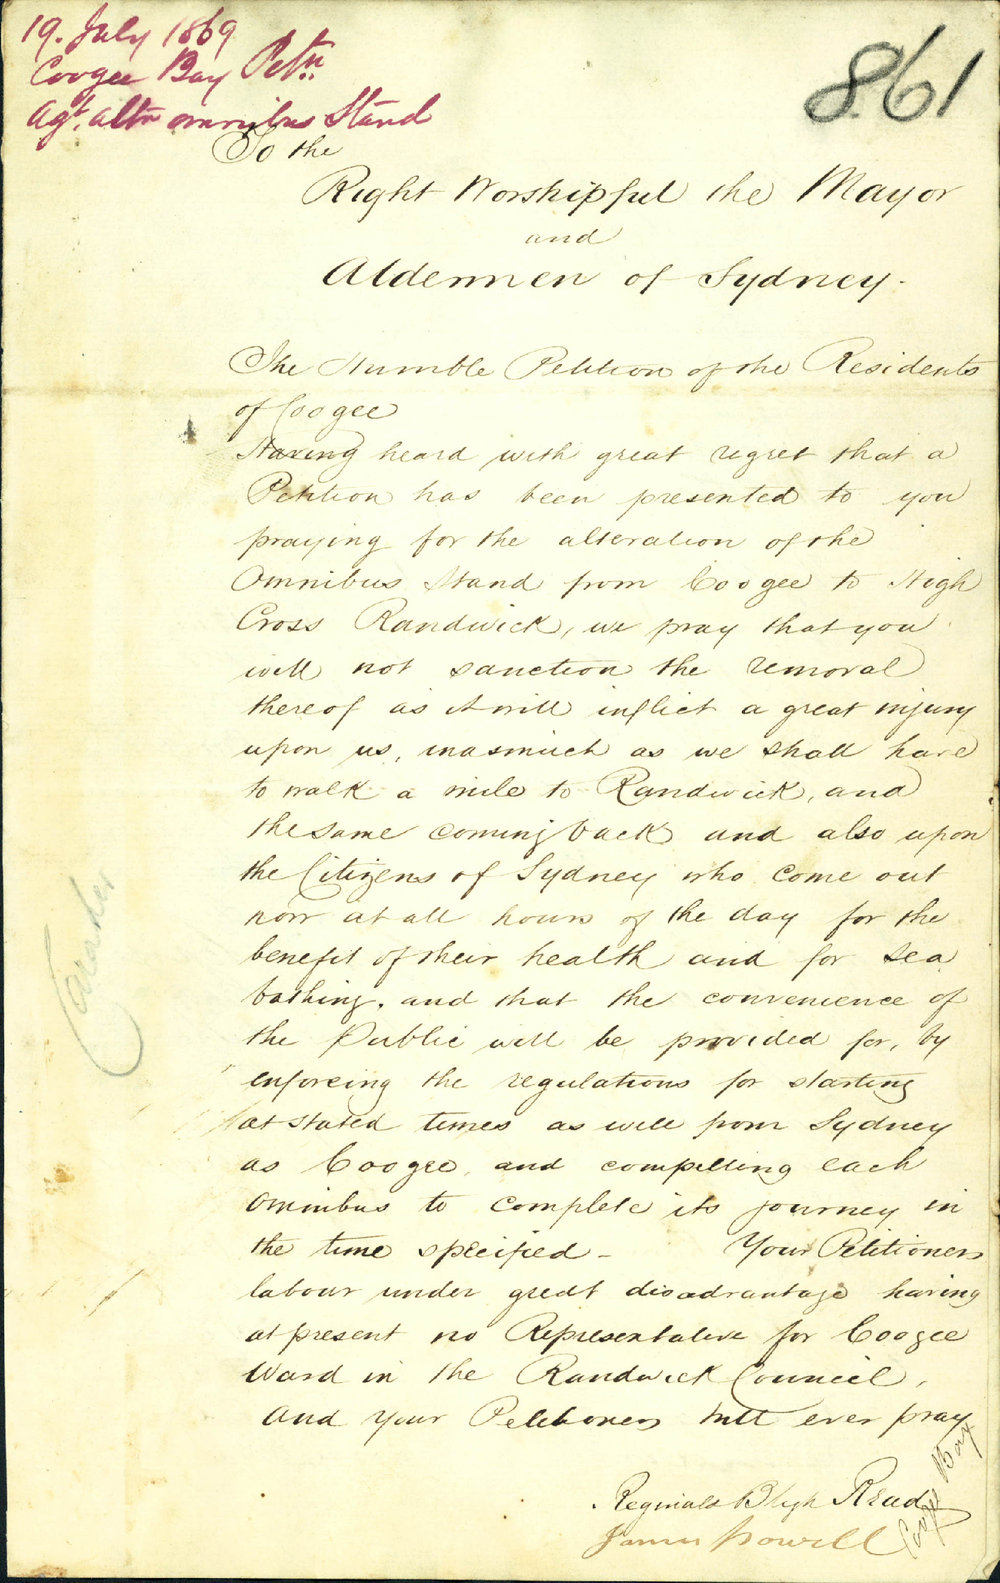 19. July 1869
Coogee Bay Petn.
agt. altn omnibus Stand
861
To the
Right Worshipful the Mayor
and
Aldermen of Sydney.
The Humble Petition of the Residents
of Coogee
Having heard with great regret that a
Petition has been presented to you
praying for the alteration of the
Omnibus Stand from Coogee to High
Cross Randwick, we pray that you
will not sanction the removal
thereof as it will inflict a great injury
upon us, inasmuch as we shall have
to walk a mile to Randwick, and
the same coming back and also upon
the Citizens of Sydney who come out
now at all hours of the day for the
benefit of their health and for sea
bathing, and that the convenience of
the Public will be provided for, by
enforcing the regulations for starting
at stated times as well from Sydney
as Coogee, and compelling each
Omnibus to complete its journey in
the time specified - Your Petitioners
labour under great disadvantage having
at present no Representative for Coogee
Ward in the Randwick Council,
And Your Petitioners will ever pray
Reginald Bligh Read
James Powell
Coogee Bay